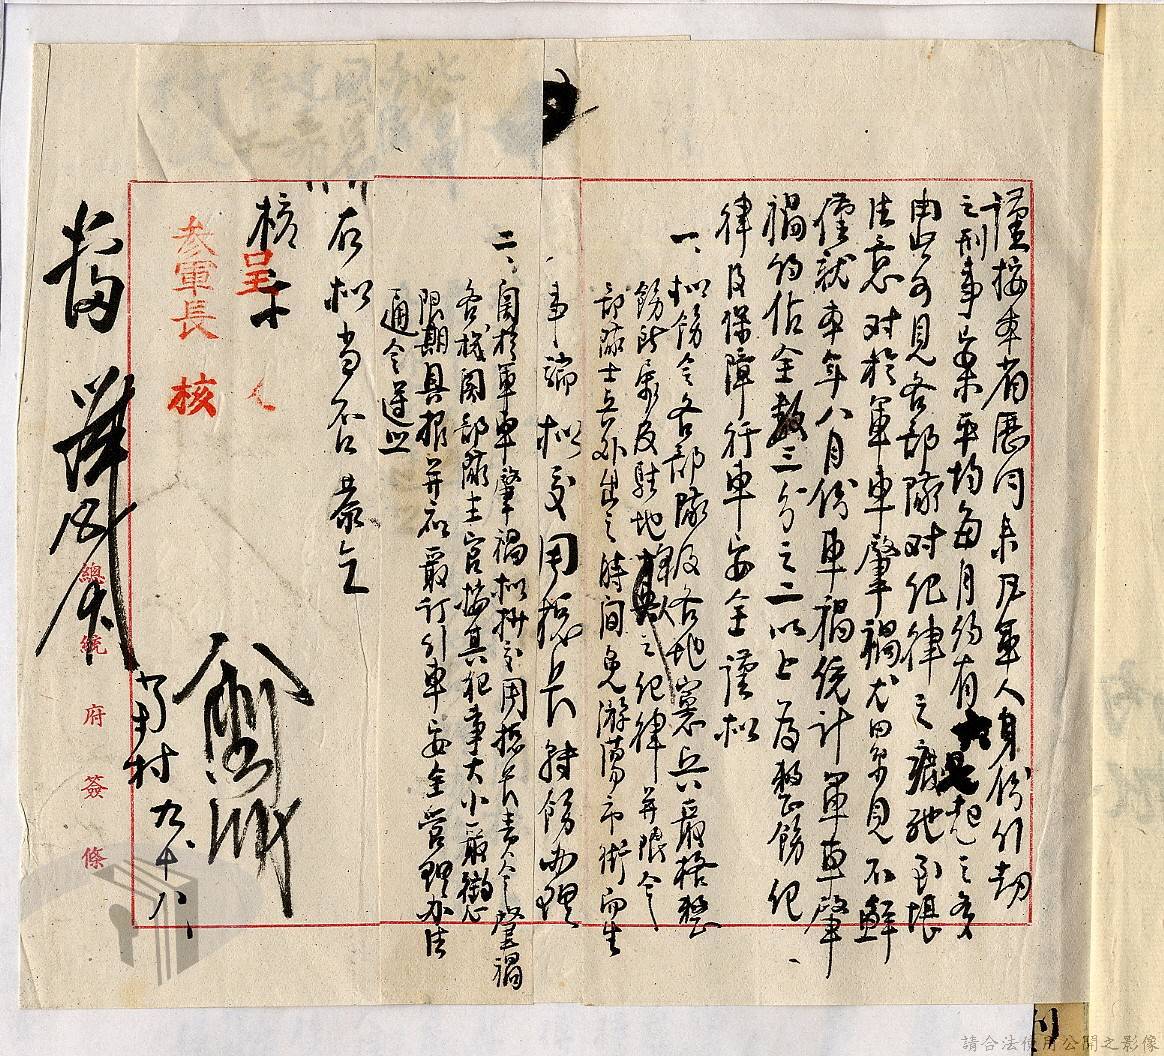 謹按本省歷同來凡軍人身份行刼
之刑事案平均每月約有起之多
由此可見各部隊对紀律之廢弛至堪
注意对於軍車肇禍尤田累見不鮮
僅就本年八月份車禍統計軍車肇
禍約佔全數三分之二以上為整飭紀
律及保障行車安全謹擬
一、擬飭令各部隊及各地憲兵嚴格整
飭所屬及駐地軍歇之紀律并限令
部隊士兵外出之時間免游蕩市街而生
事端擬交周總長轉飭办理
二、關於軍車肇禍擬併交周總長責令肇禍
各機關部隊主官按其犯事大小嚴懲
限期具報并砌嚴訂行車安全管理办法
通令遵照
右擬當否恭乞
核示
呈
参軍長 核
俞濟時
九、十八
總統府簽條
請合法使用公開之影像